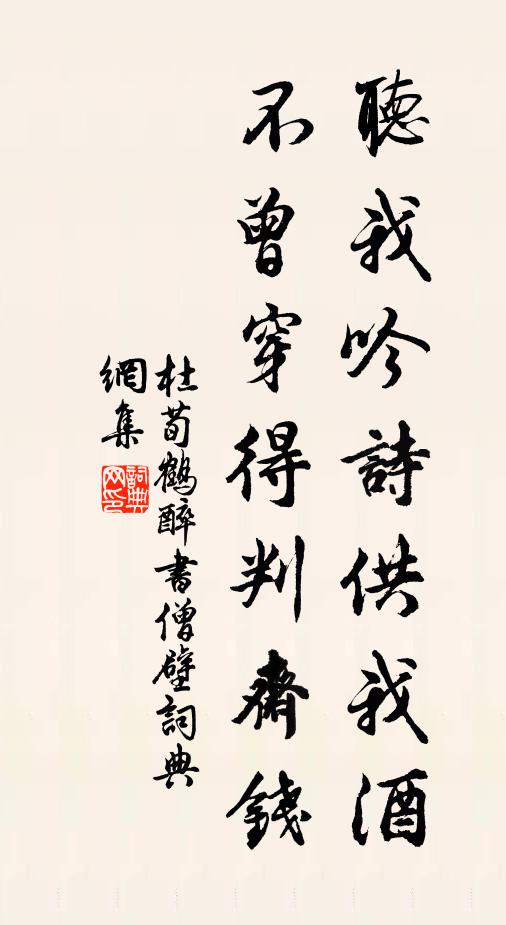 聽我吟詩供我酒
不曾穿得判齋錢
杜荀鶴醉書僧壁詞典
網集
詞典網印